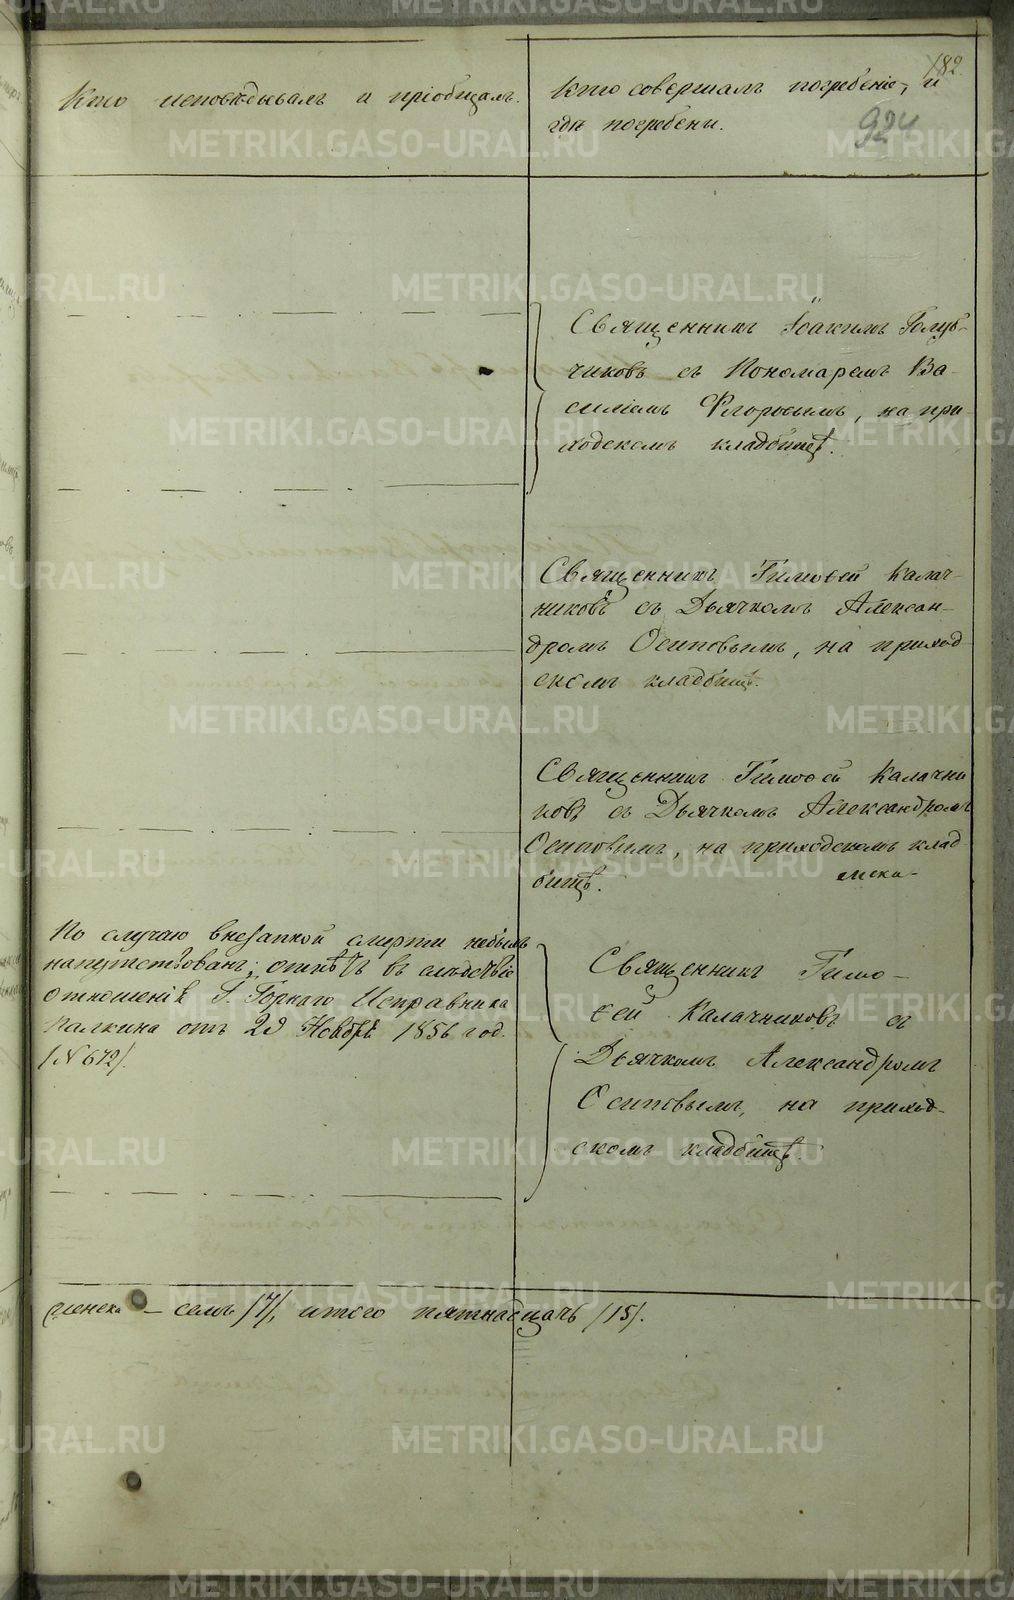 182
Кто исповѣдывалъ и пріобщалъ.
Кто совершалъ погребеніе, и
гдѣ погребены.
924
Священникъ Іоакимъ Голуб-
чиковъ съ Пономаремъ Ва-
силіемъ Флоровымъ, на при-
ходскомъ кладбищѣ.
Священникъ Тимоѳей Калач-
никовъ съ Дьячкомъ Алексан-
дромъ Осиповымъ, на приход-
скомъ кладбищѣ.
Священникъ Тимоѳей Калачни
ковъ съ Дьячкомъ Александромъ
Осиповымъ, на приходскомъ клад
бищѣ.
По случаю внезапной смерти небылъ
напутствованъ; отпѣтъ въ слѣдствіе
отношенія Г. Горнаго Исправника
Калкина отъ 29 Ноября 1856 год.
/N 672/.
Священникъ Тимо-
ѳей Калачниковъ съ
Дьячкомъ Александромъ
Осиповымъ, на приход-
скомъ кладбищѣ.
женска – семь /7/, итого пятнадцать /15/.
METRIKI.GASO-URAL.RU